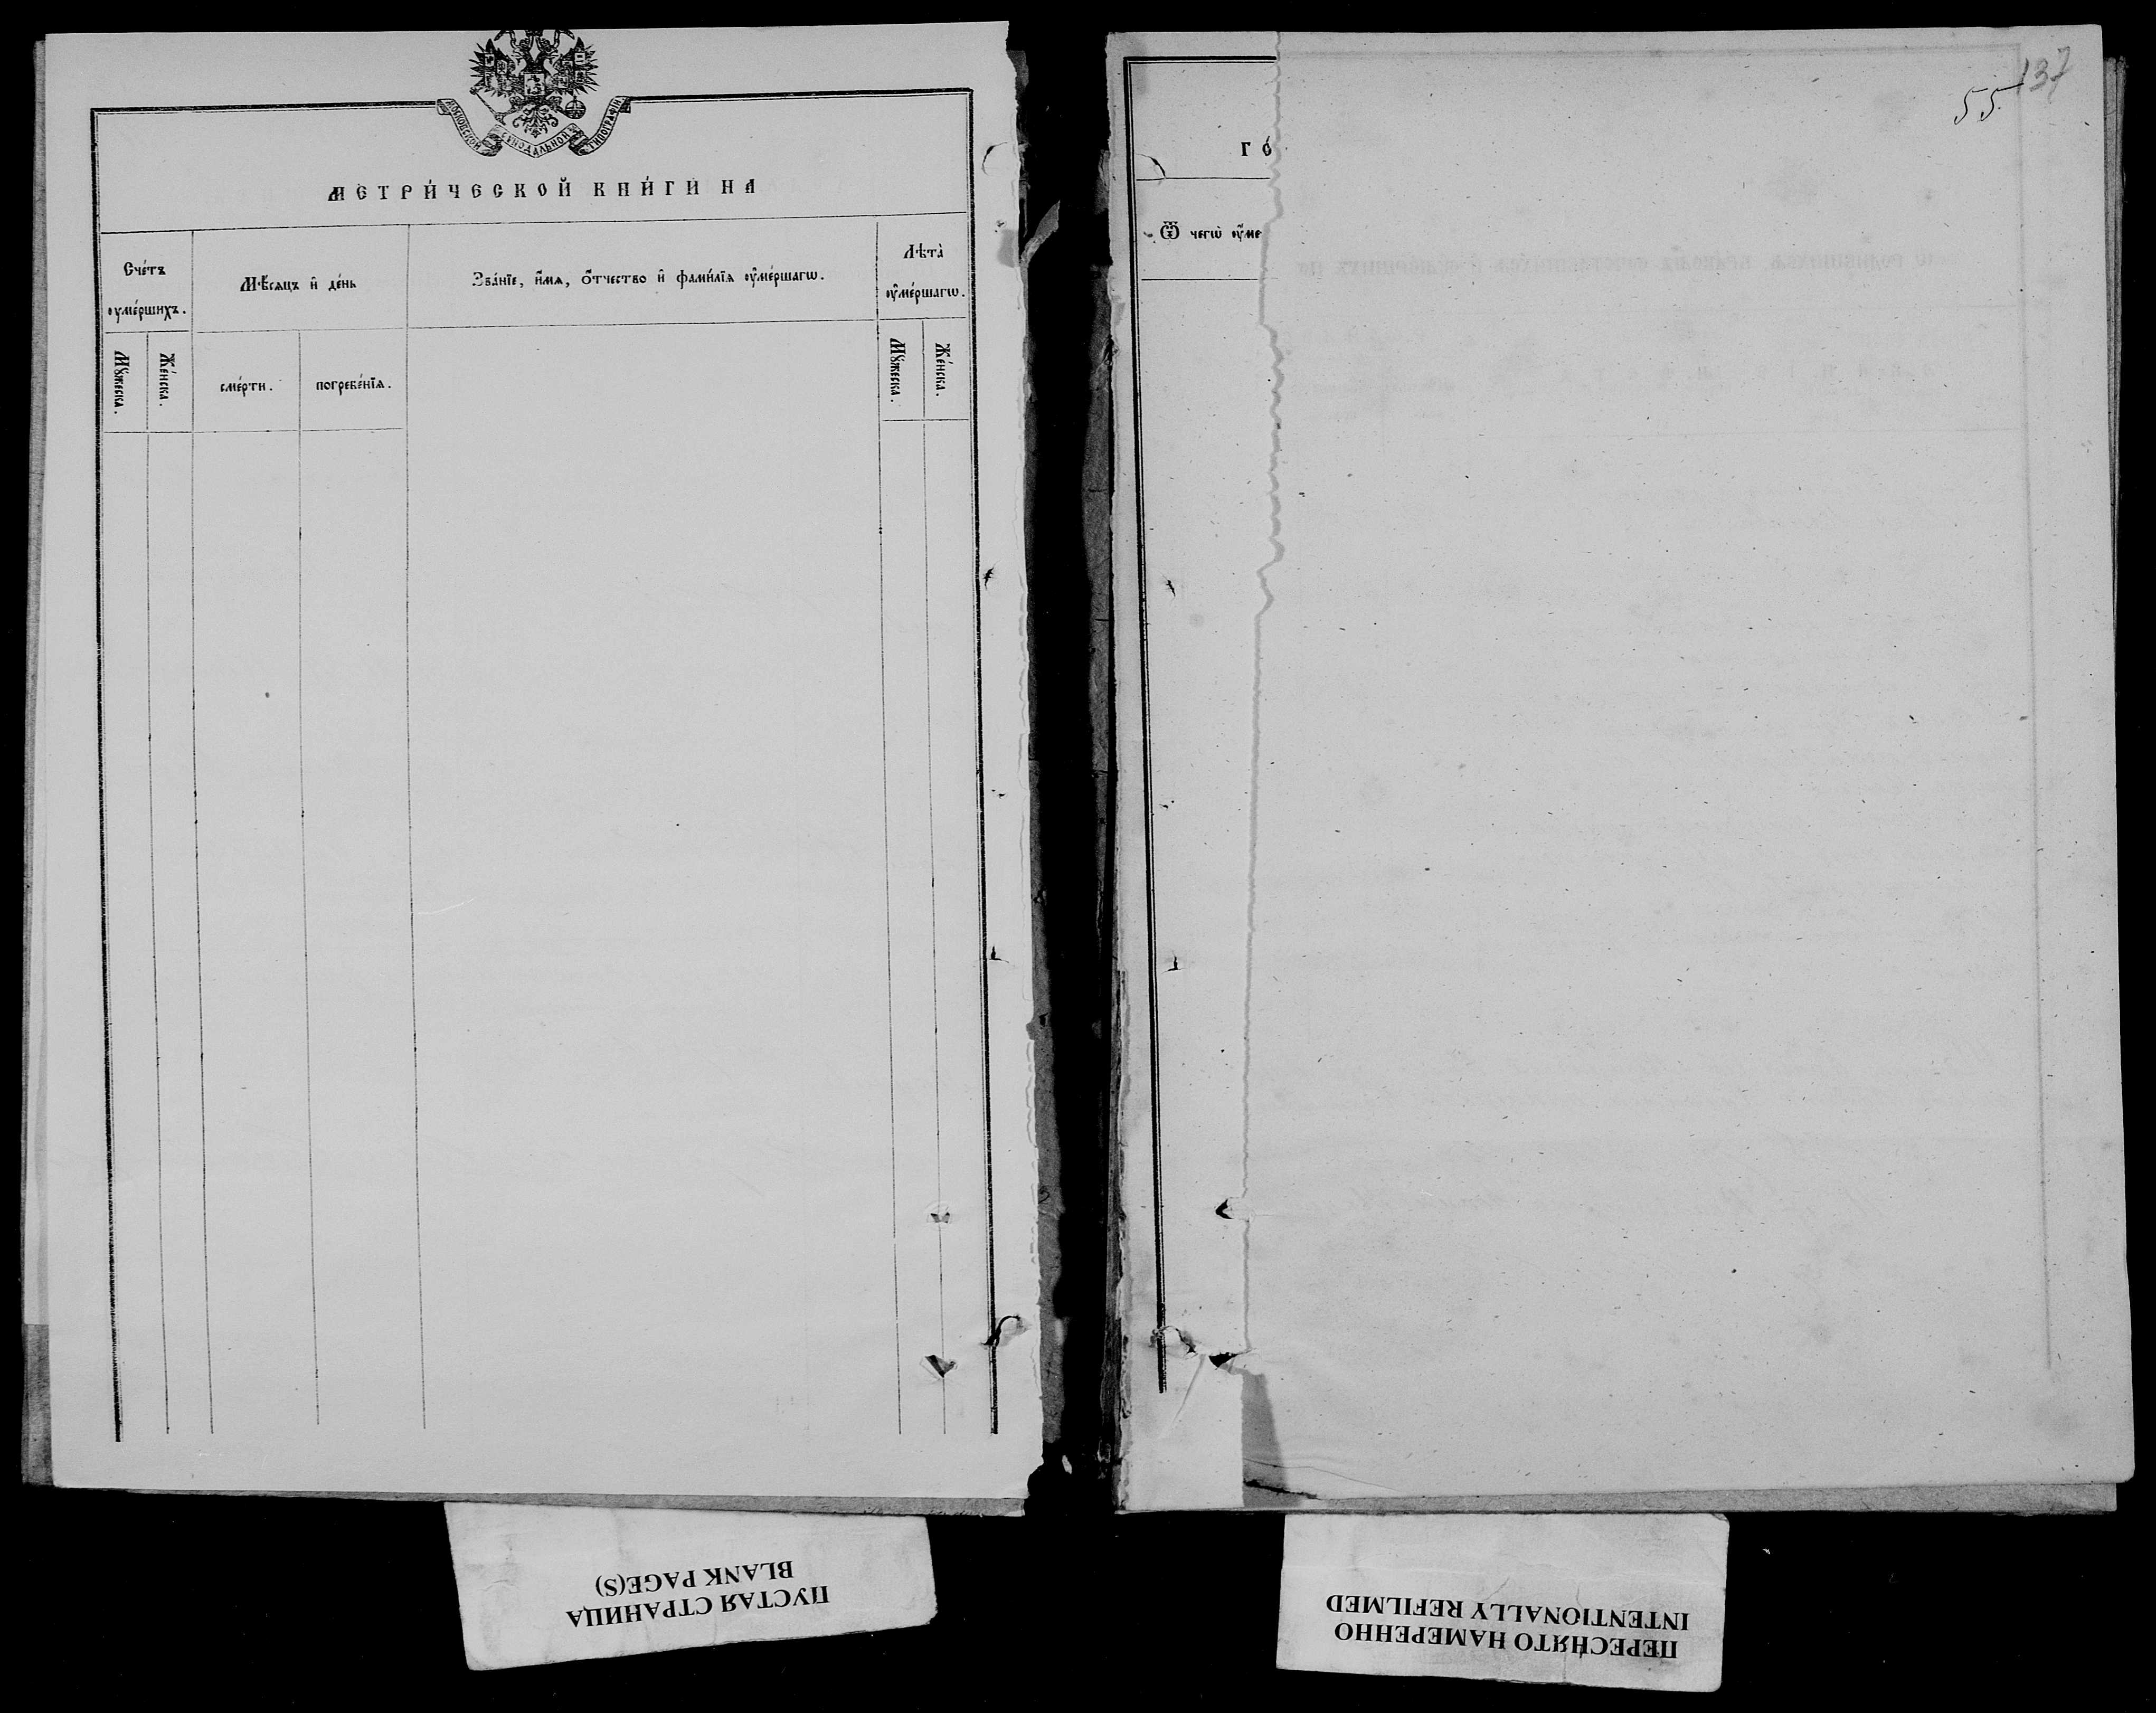 МОСКОВСКОЙ СѴНОДАЛЬНОЙ ТИПОГРАФІИ
МЕТРИ́ЧЕСКОЙ КНИ́ГИ НА
Сче́тъ
оуме́ршихъ.
Мѣ́сяцъ и҆ де́нь
Зва́нїе, и҆́мя, ѻ҆́тчество и҆ фами́лїя оу҆ме́ршагѡ.
Лѣта̀
оу҆ме́ршагѡ.
Мꙋ́жеска.
Же́нска.
сме́рти.
погребе́нїя.
Мꙋ́жеска.
Же́нска.
137
55
ГО́
Ѿ чегѡ̀ оу҆́ме
ПУСТАЯ СТРАНИЦА
BLANK PAGE(S)
ПЕРЕСНЯТО НАМЕРЕННО
INTENTIONALLY REFILMED